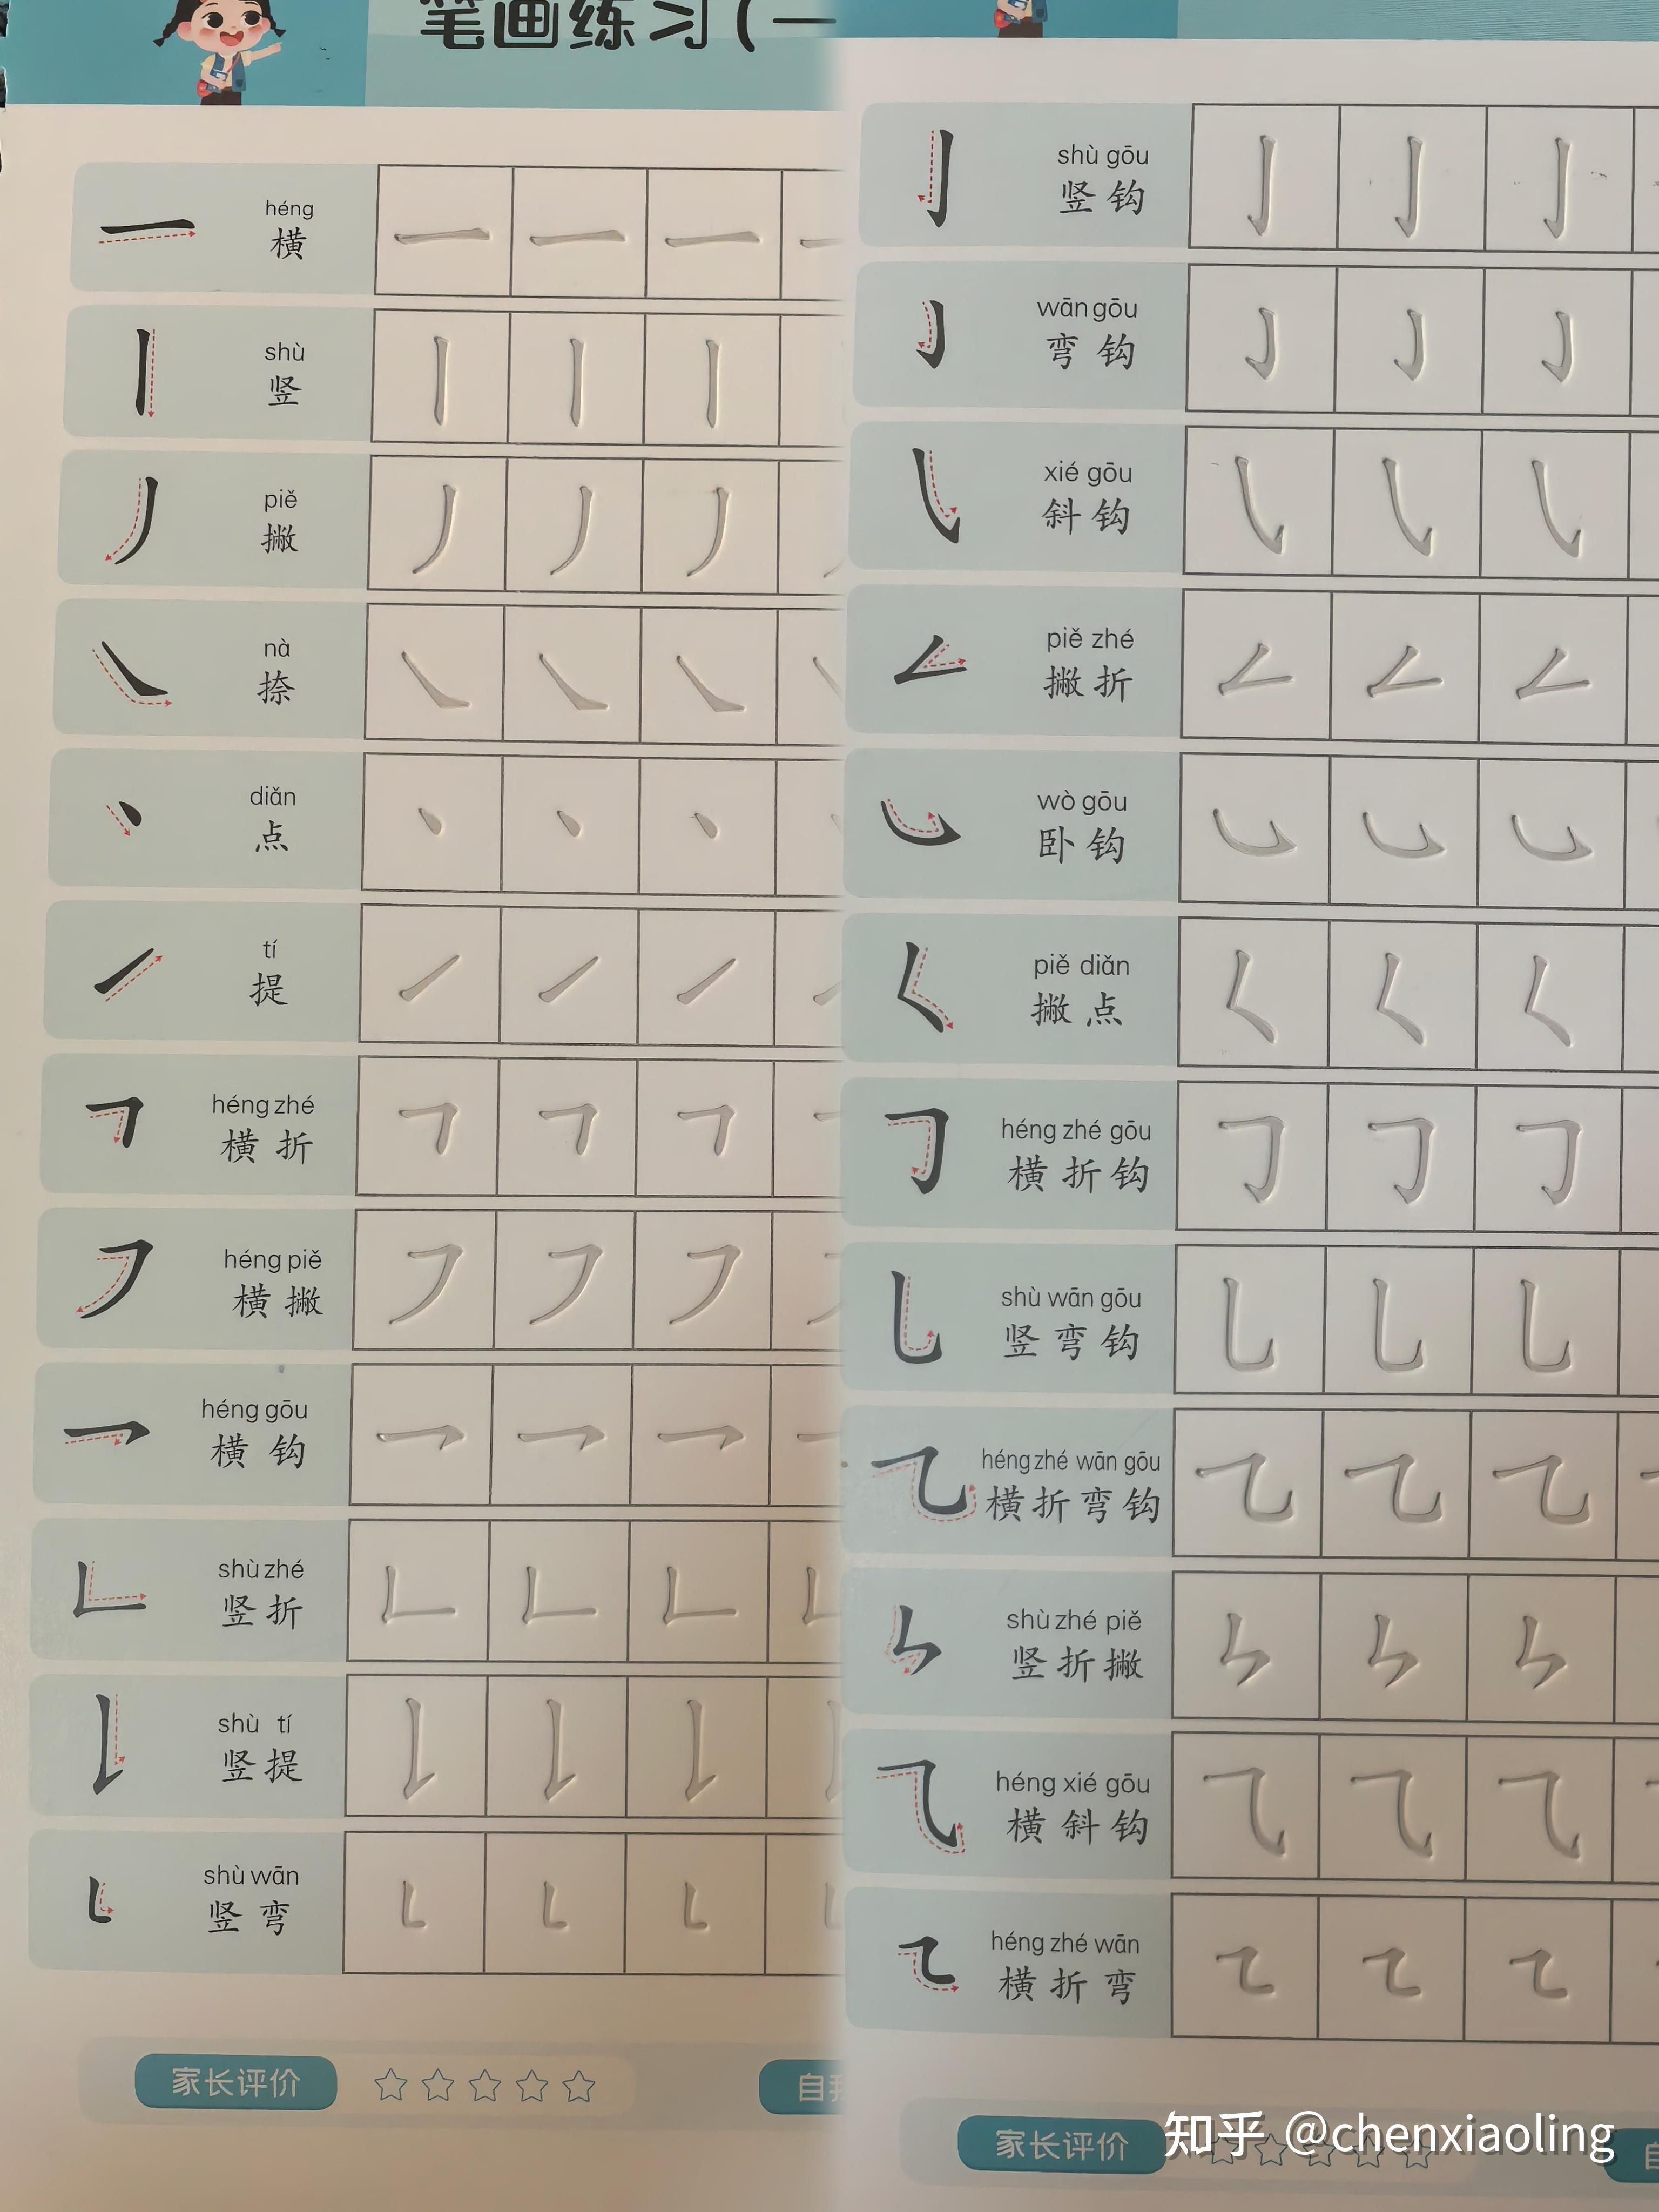 笔画练习(一
héng
横
shù
竖
piě
撇
nà
捺
diǎn
点
tí
提
héng zhé
横 折
héng piě
横 撇
héng gōu
横 钩
shù zhé
竖 折
shù tí
竖 提
shù wān
竖 弯
家长评价
shù gōu
竖 钩
wān gōu
弯 钩
xié gōu
斜 钩
piě zhé
撇 折
wò gōu
卧 钩
piě diǎn
撇 点
héng zhé gōu
横 折 钩
shù wān gōu
竖 弯 钩
héng zhé wān gōu
横 折 弯 钩
shù zhé piě
竖 折 撇
héng xié gōu
横 斜 钩
héng zhé wān
横 折 弯
家长评价
知乎 @chenxiaoling